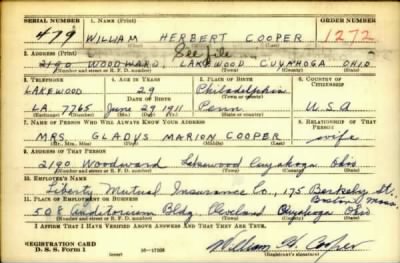 SERIAL NUMBER 1. NAME (Print) ORDER NUMBER
479 WILLIAM HERBERT COOPER 1272
(First) (Middle) (Last)
2. ADDRESS (Print) See file
2190 WOODWARD, LAKEWOOD CUYAHOGA OHIO
(Number and street or R. F. D. number) (Town) (County) (State)
3. TELEPHONE 4. AGE IN YEARS 5. PLACE OF BIRTH 6. COUNTRY OF CITIZENSHIP
LAKEWOOD 29 Philadelphia
DATE OF BIRTH
LA. 7765 June 29 1911 Penn U.S.A
(Exchange) (Number) (Mo.) (Day) (Yr.) (Town or county) (State or country)
7. NAME OF PERSON WHO WILL ALWAYS KNOW YOUR ADDRESS 8. RELATIONSHIP OF THAT PERSON
MRS. GLADYS MARION COOPER wife
(Mr., Mrs., Miss) (First) (Middle) (Last)
9. ADDRESS OF THAT PERSON
2190 Woodward Lakewood Cuyahoga Ohio
(Number and street or R. F. D. number) (Town) (County) (State)
10. EMPLOYER'S NAME
Liberty Mutual Insurance Co., 175 Berkeley St.
11. PLACE OF EMPLOYMENT OR BUSINESS Boston Mass.
508 Auditorium Bldg. Cleveland Cuyahoga Ohio
(Number and street or R. F. D. number) (Town) (County) (State)
I AFFIRM THAT I HAVE VERIFIED ABOVE ANSWERS AND THAT THEY ARE TRUE.
REGISTRATION CARD
D. S. S. Form 1 William H. Cooper
(Registrant's signature)